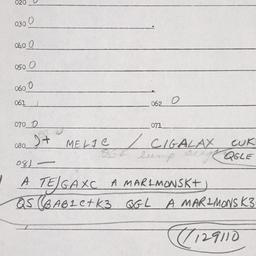 020 0
030 0
040 0
050 0
060 0
061 062 0
070 0 071
080 )+ MEL1C / CIGALAX CUK
QGLE
081 —
A TE/GAXC A MAR1MONSK+)
QS (BAB1C+K3 QGL A MAR1MONSK3
(//129110